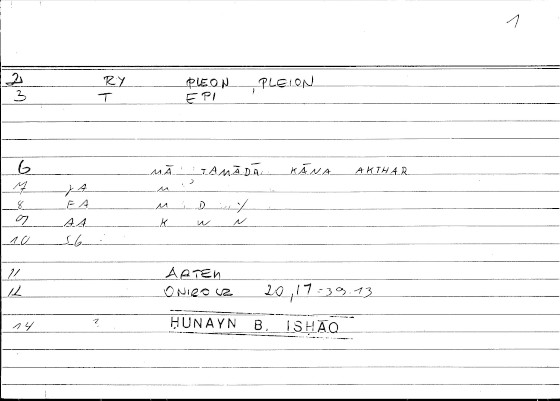 1
2 RY PLEON, PLEION
3 T EPI
6 MĀ TAMĀDĀ KĀNA AKTHAR
7 JA M
8 FA M D Y
9 AA K W N
10 SG
11 ARTEM
12 ONIROCR 20,17=39.13
14 ? HUNAYN B. ISHĀQ